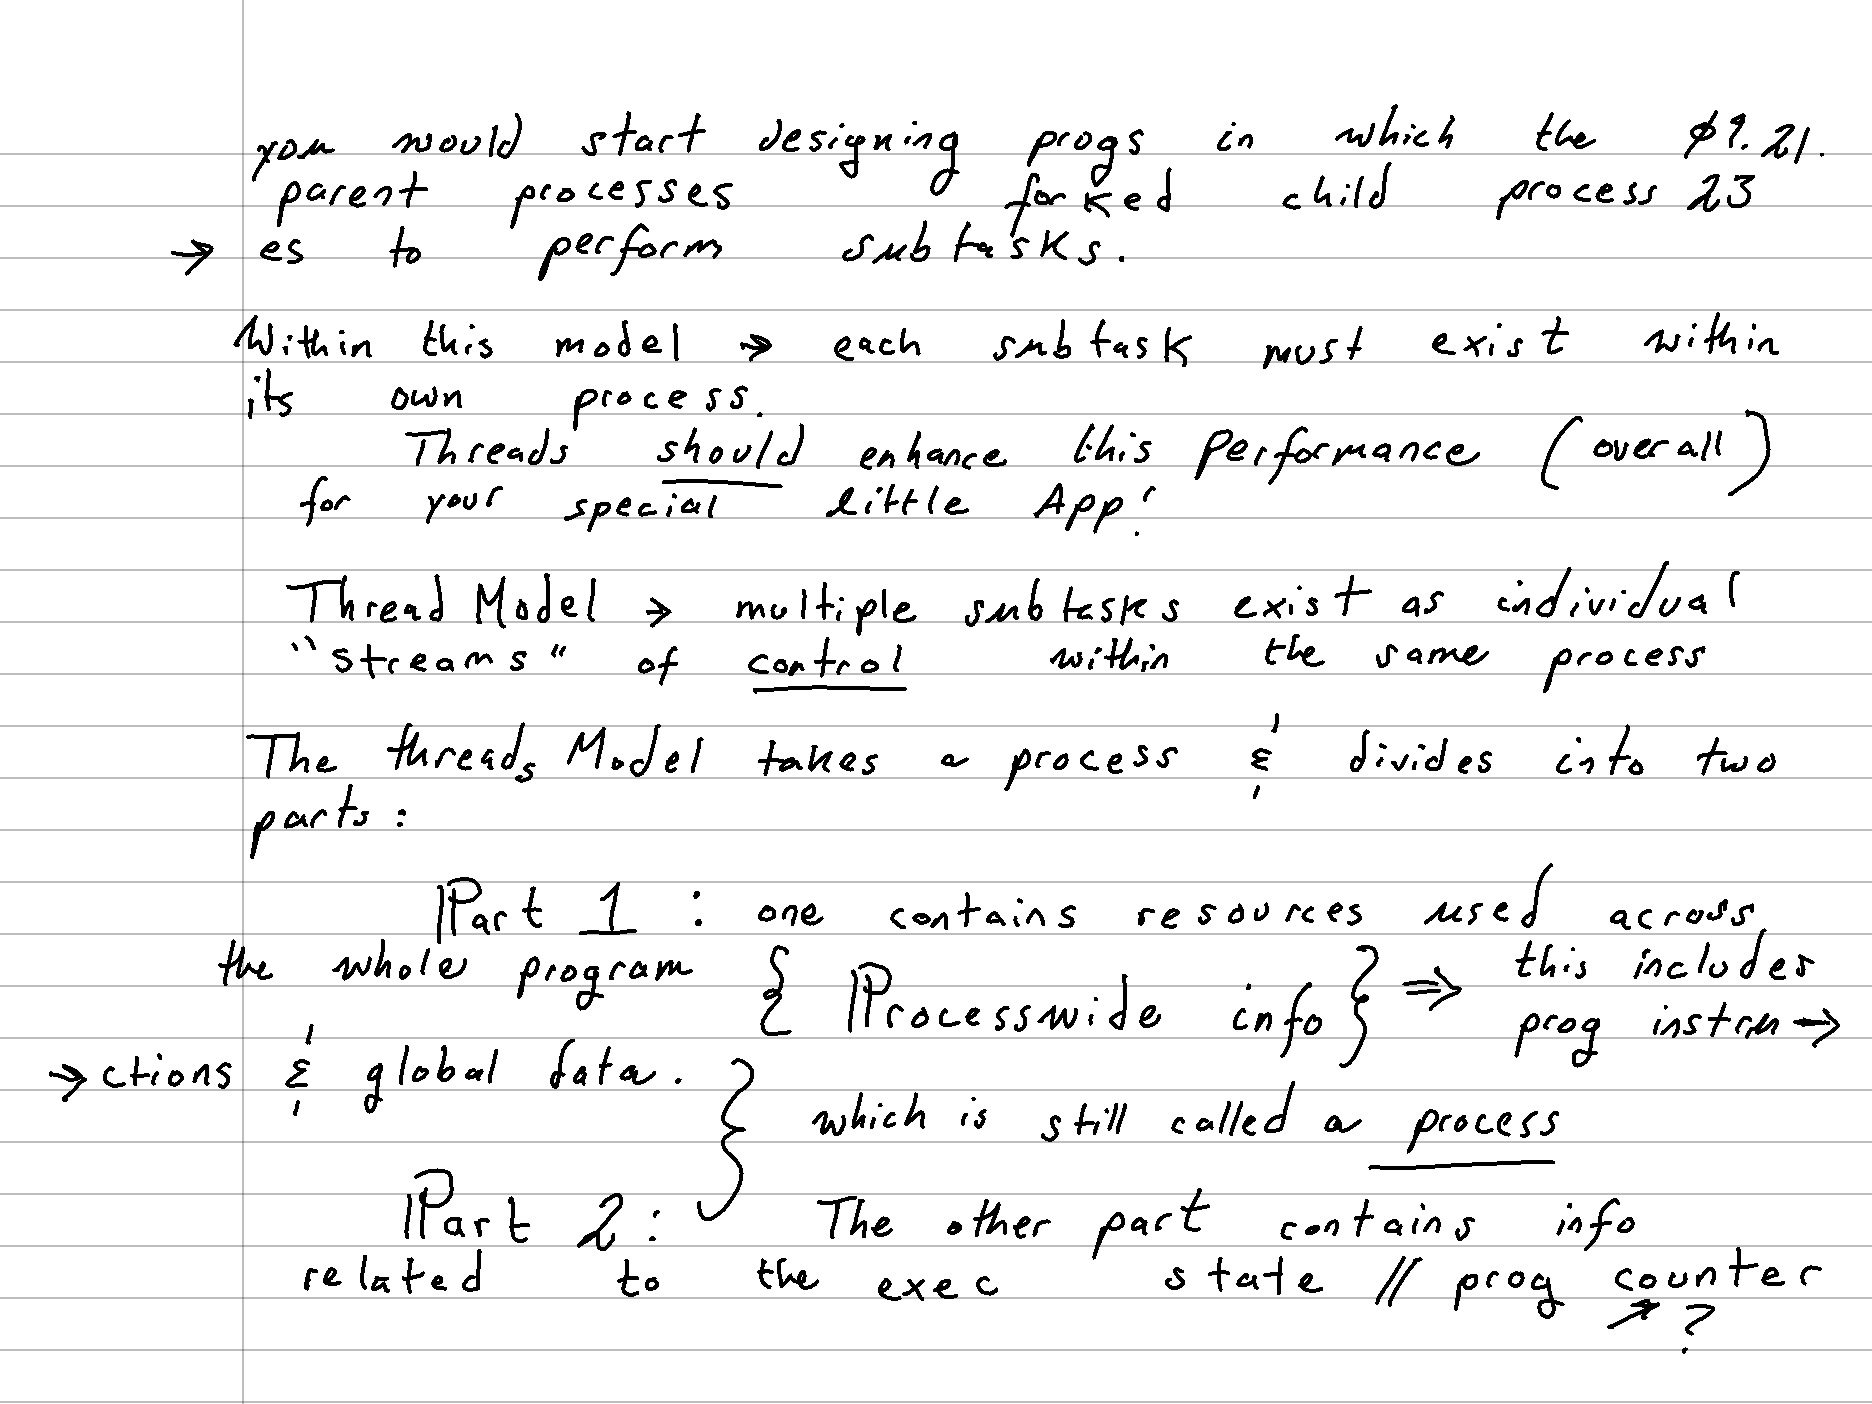 you would start designing progs in which the 09.21.
parent processes forked child process 23
→ es to perform subtasks.
Within this model → each subtask must exist within
its own process.
Threads should enhance this performance (overall)
for your special little App!
Thread Model → multiple subtasks exist as individual
"streams" of control within the same process
The threads Model takes a process & divides into two
parts:
Part 1 : one contains resources used across
the whole program { Processwide info } ⇒ this includes
prog instru →
→ ctions & global data.
} which is still called a process
Part 2: The other part contains info
related to the exec state // prog counter
↗ ?